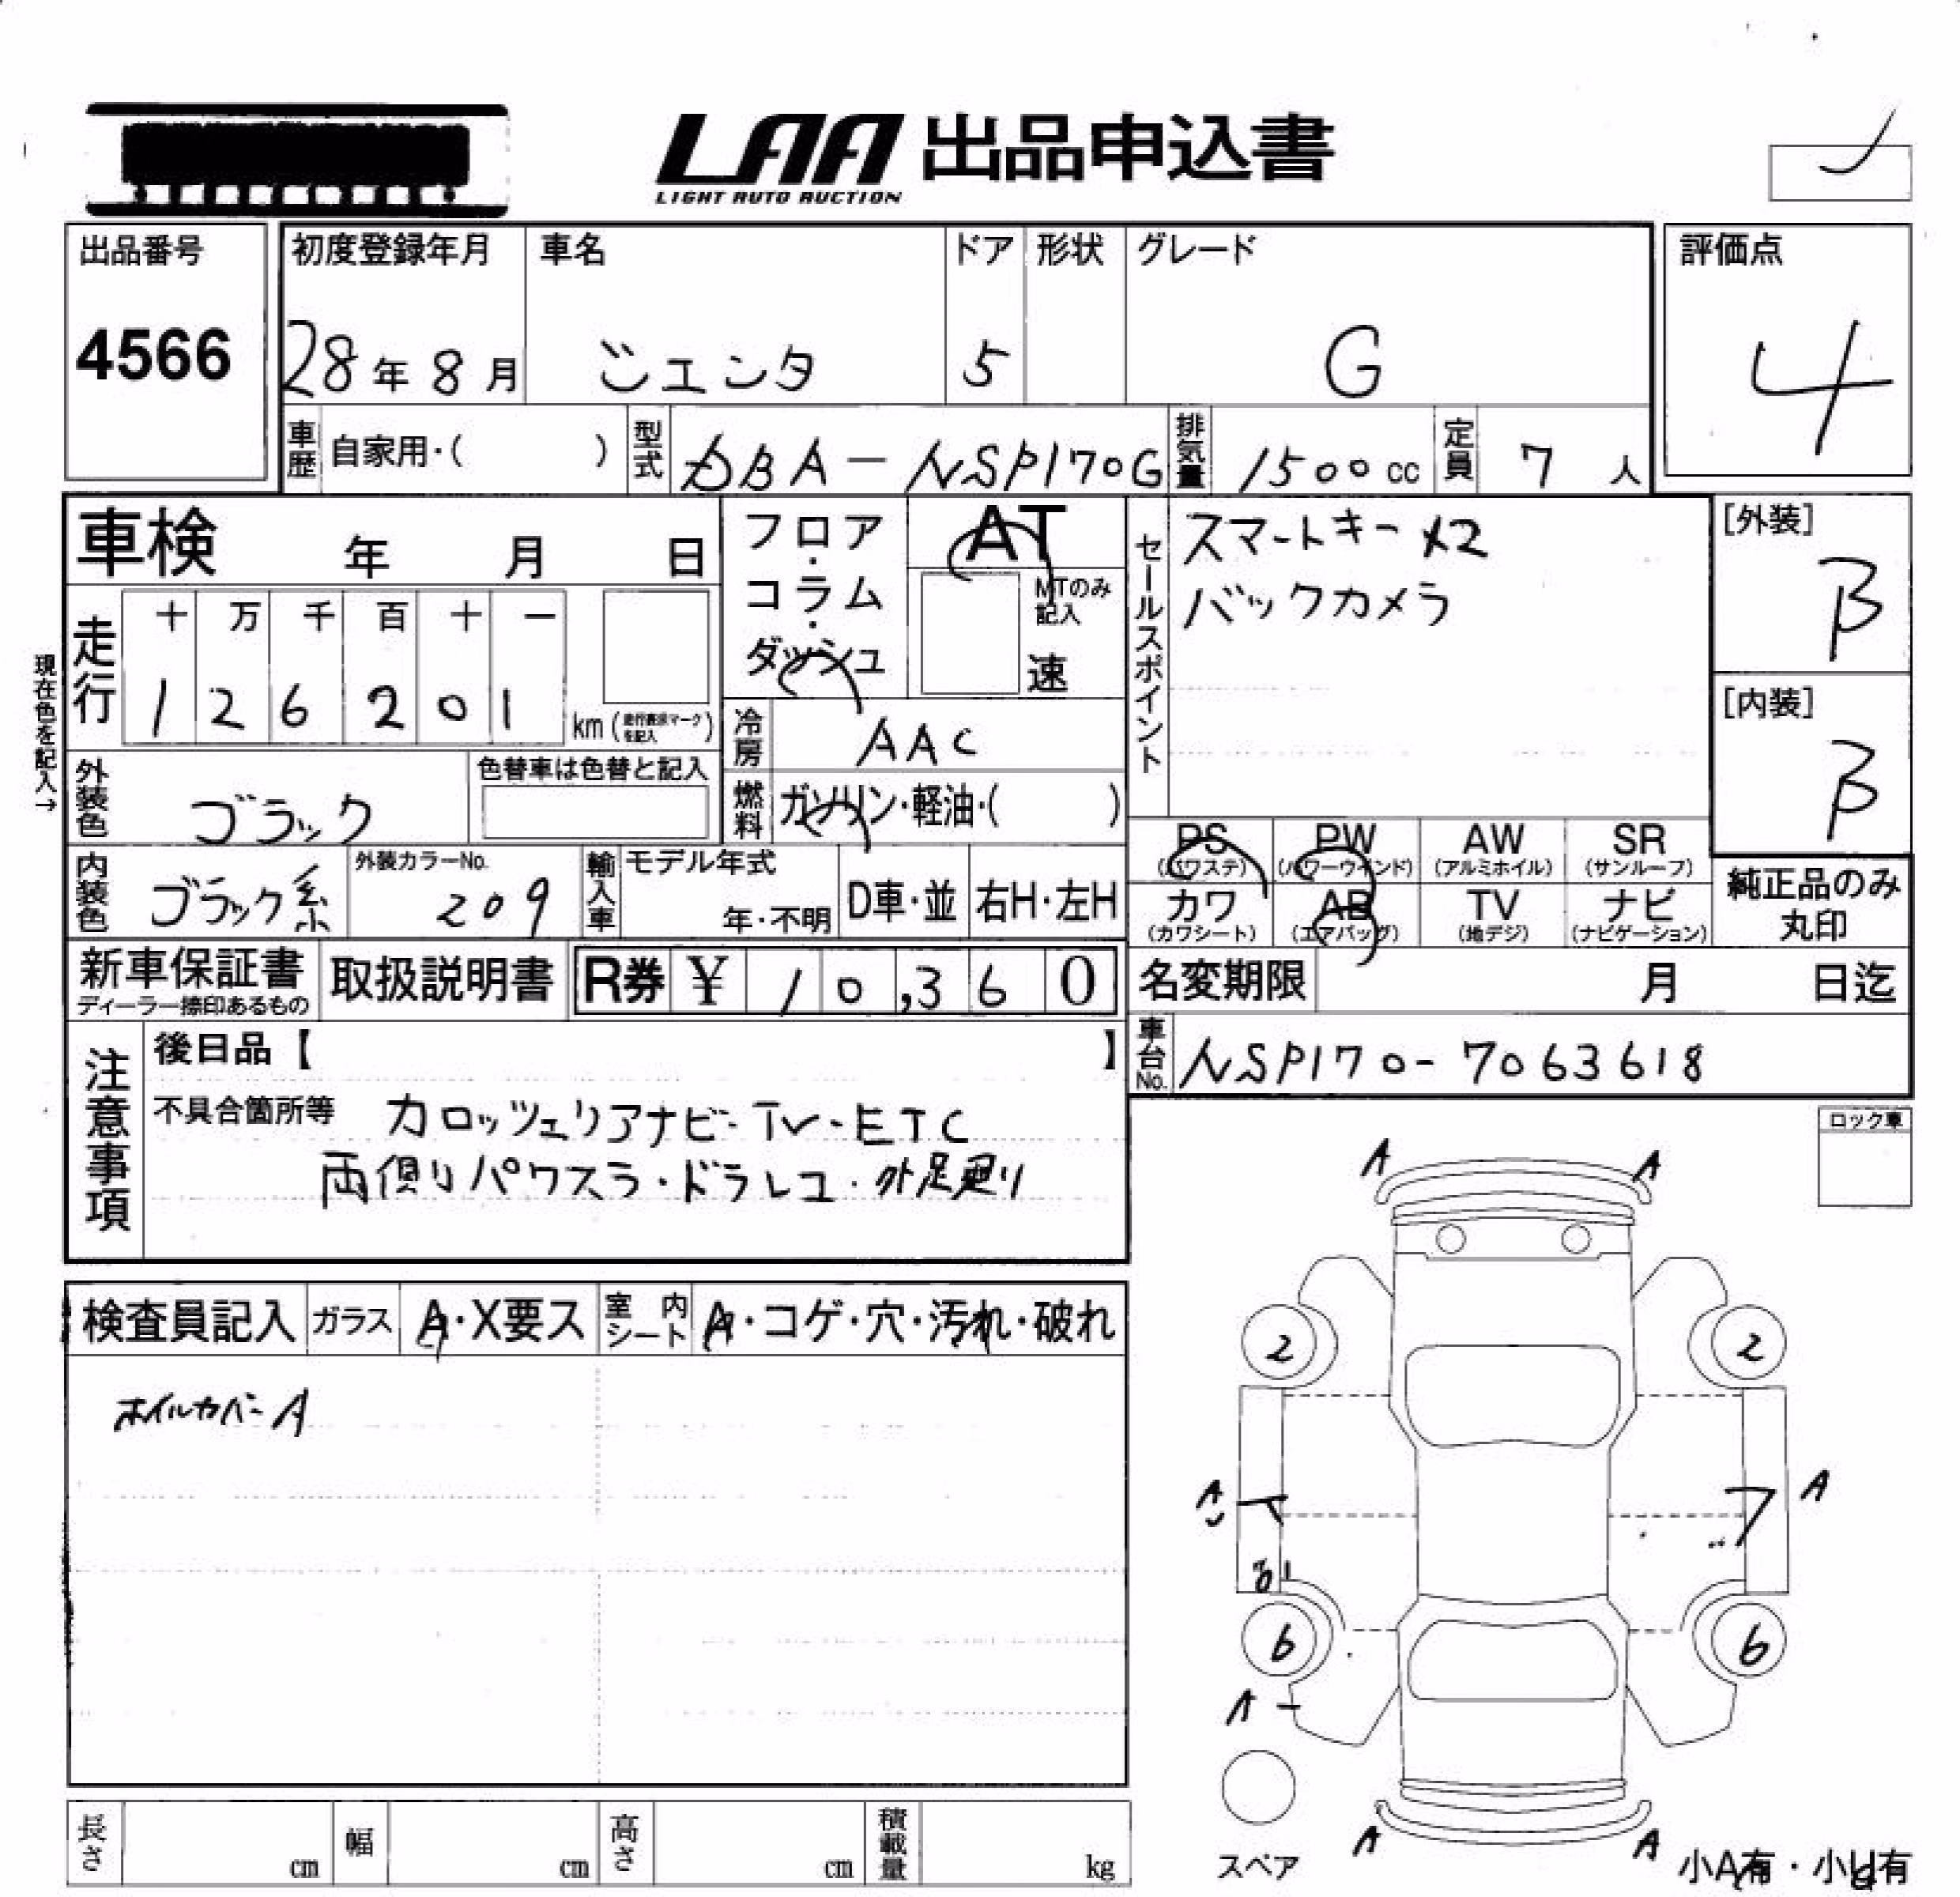 LAA 出品申込書
LIGHT AUTO AUCTION
出品番号
4566
初度登録年月
28年8月
車名
シエンタ
ドア
5
形状
グレード
G
評価点
4
車歴 自家用・( )
型式 DBA-NSP170G
排気量 1500cc
定員 7人
車検 年 月 日
フロア・コラム・ダッシュ
AT
MTのみ記入
速
セールスポイント
スマートキー×2
バックカメラ
[外装]
B
[内装]
B
現在色を記入→
走行
十 万 千 百 十 一
1 2 6 2 0 1
km
冷房 AAC
燃料 ガソリン・軽油・( )
外装色 ブラック
色替車は色替と記入
内装色 ブラック系
外装カラーNo.
209
輸入車
モデル年式
年・不明
D車・並
右H・左H
PS (パワステ)
PW (パワーウインド)
AW (アルミホイル)
SR (サンルーフ)
カワ (カワシート)
AB (エアバッグ)
TV (地デジ)
ナビ (ナビゲーション)
純正品のみ丸印
新車保証書
ディーラー捺印あるもの
取扱説明書
R券 ¥ 10,360
名変期限 月 日迄
車台No. NSP170-7063618
注意事項
後日品【 】
不具合箇所等 カロッツェリアナビ・TV・ETC
両側パワスラ・ドラレコ・外足廻り
ロック車
検査員記入
ガラス A・X要ス
室内シート A・コゲ・穴・汚れ・破れ
ホイルカバーA
A A
2 2
A
A
6 6
A
A A
スペア
小A有・小U有
長さ cm
幅 cm
高さ cm
積載量 kg